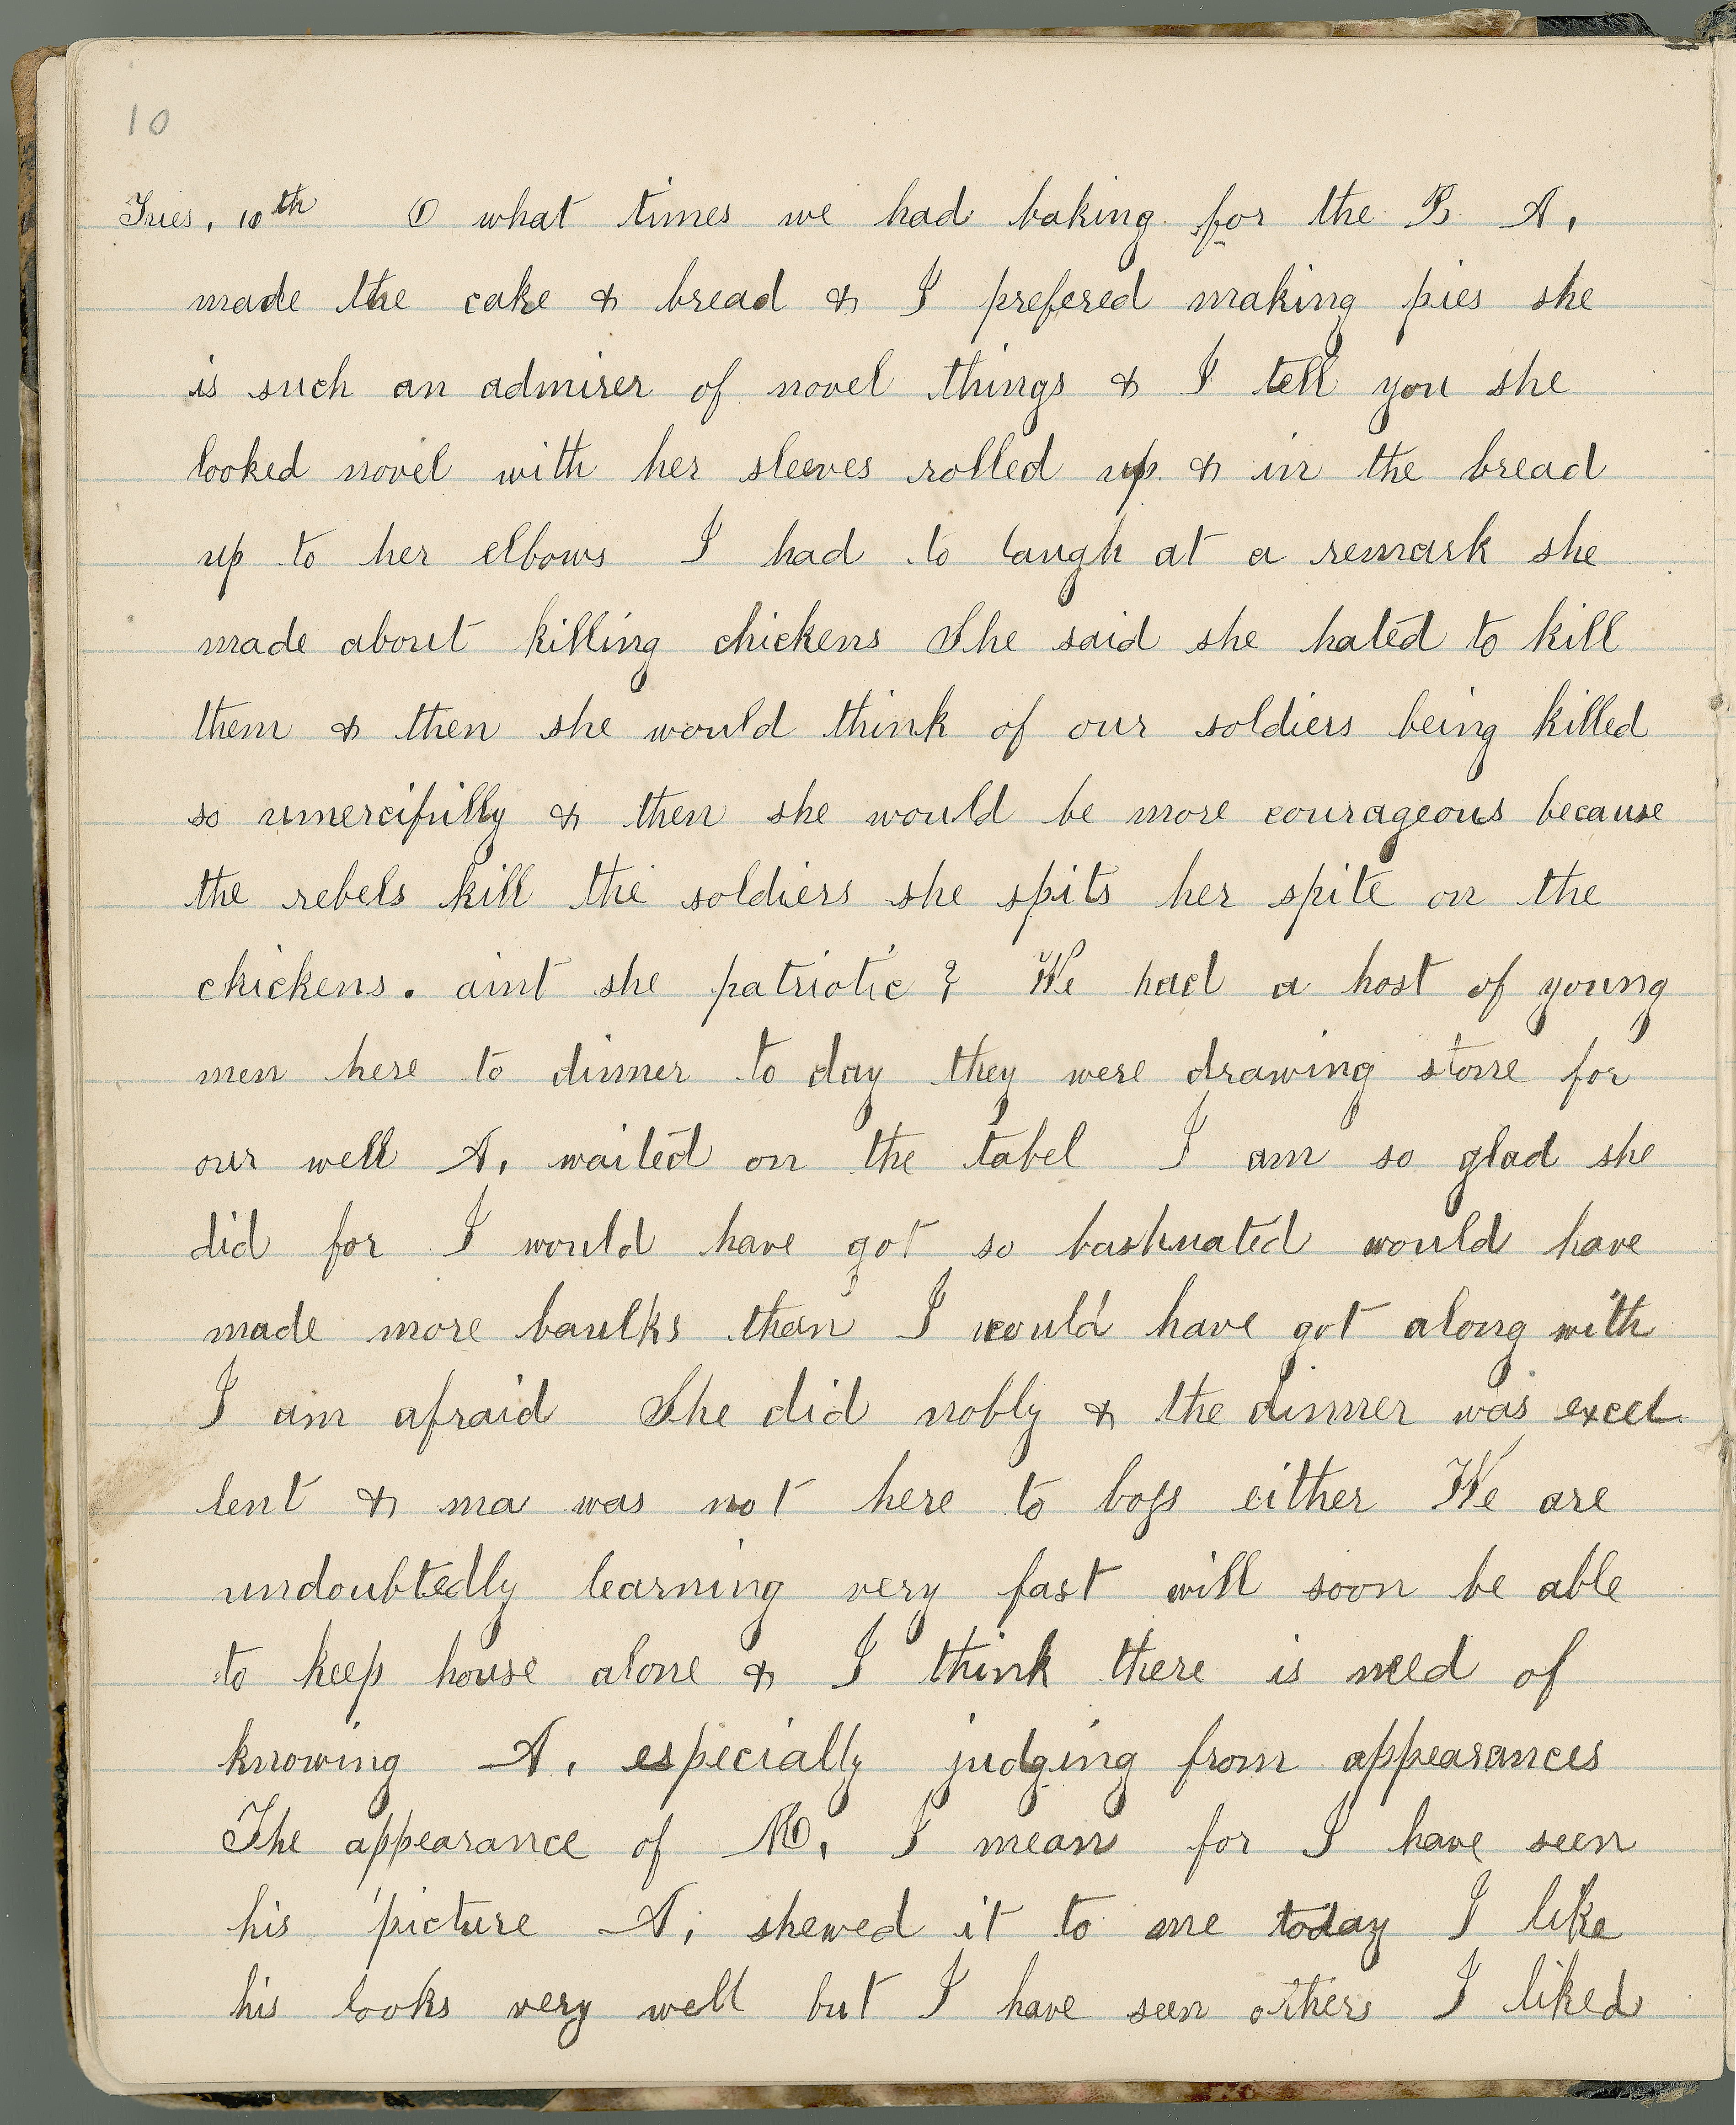 10
Tues, 10th O what times we had baking for the B. A,
made the cake & bread & I prefered making pies she
is such an admirer of novel things & I tell you she
looked novel with her sleeves rolled up & in the bread
up to her elbows I had to laugh at a remark she
made about killing chickens She said she hated to kill
them & then she would think of our soldiers being killed
so unmercifully & then she would be more courageous because
the rebels kill the soldiers she spits her spite on the
chickens. aint she patriotic? We had a host of young
men here to dinner to day they were drawing stone for
our well A, waited on the tabel I am so glad she
did for I would have got so bashuated would have
made more baulks than I would have got along with
I am afraid She did nobly & the dinner was excel
lent & ma was not here to boss either We are
undoubtedly learning very fast will soon be able
to keep house alone & I think there is need of
knowing A, especially judging from appearances
The appearance of I mean for I have seen
his picture A, shewed it to me today I like
his looks very well but I have seen others I liked